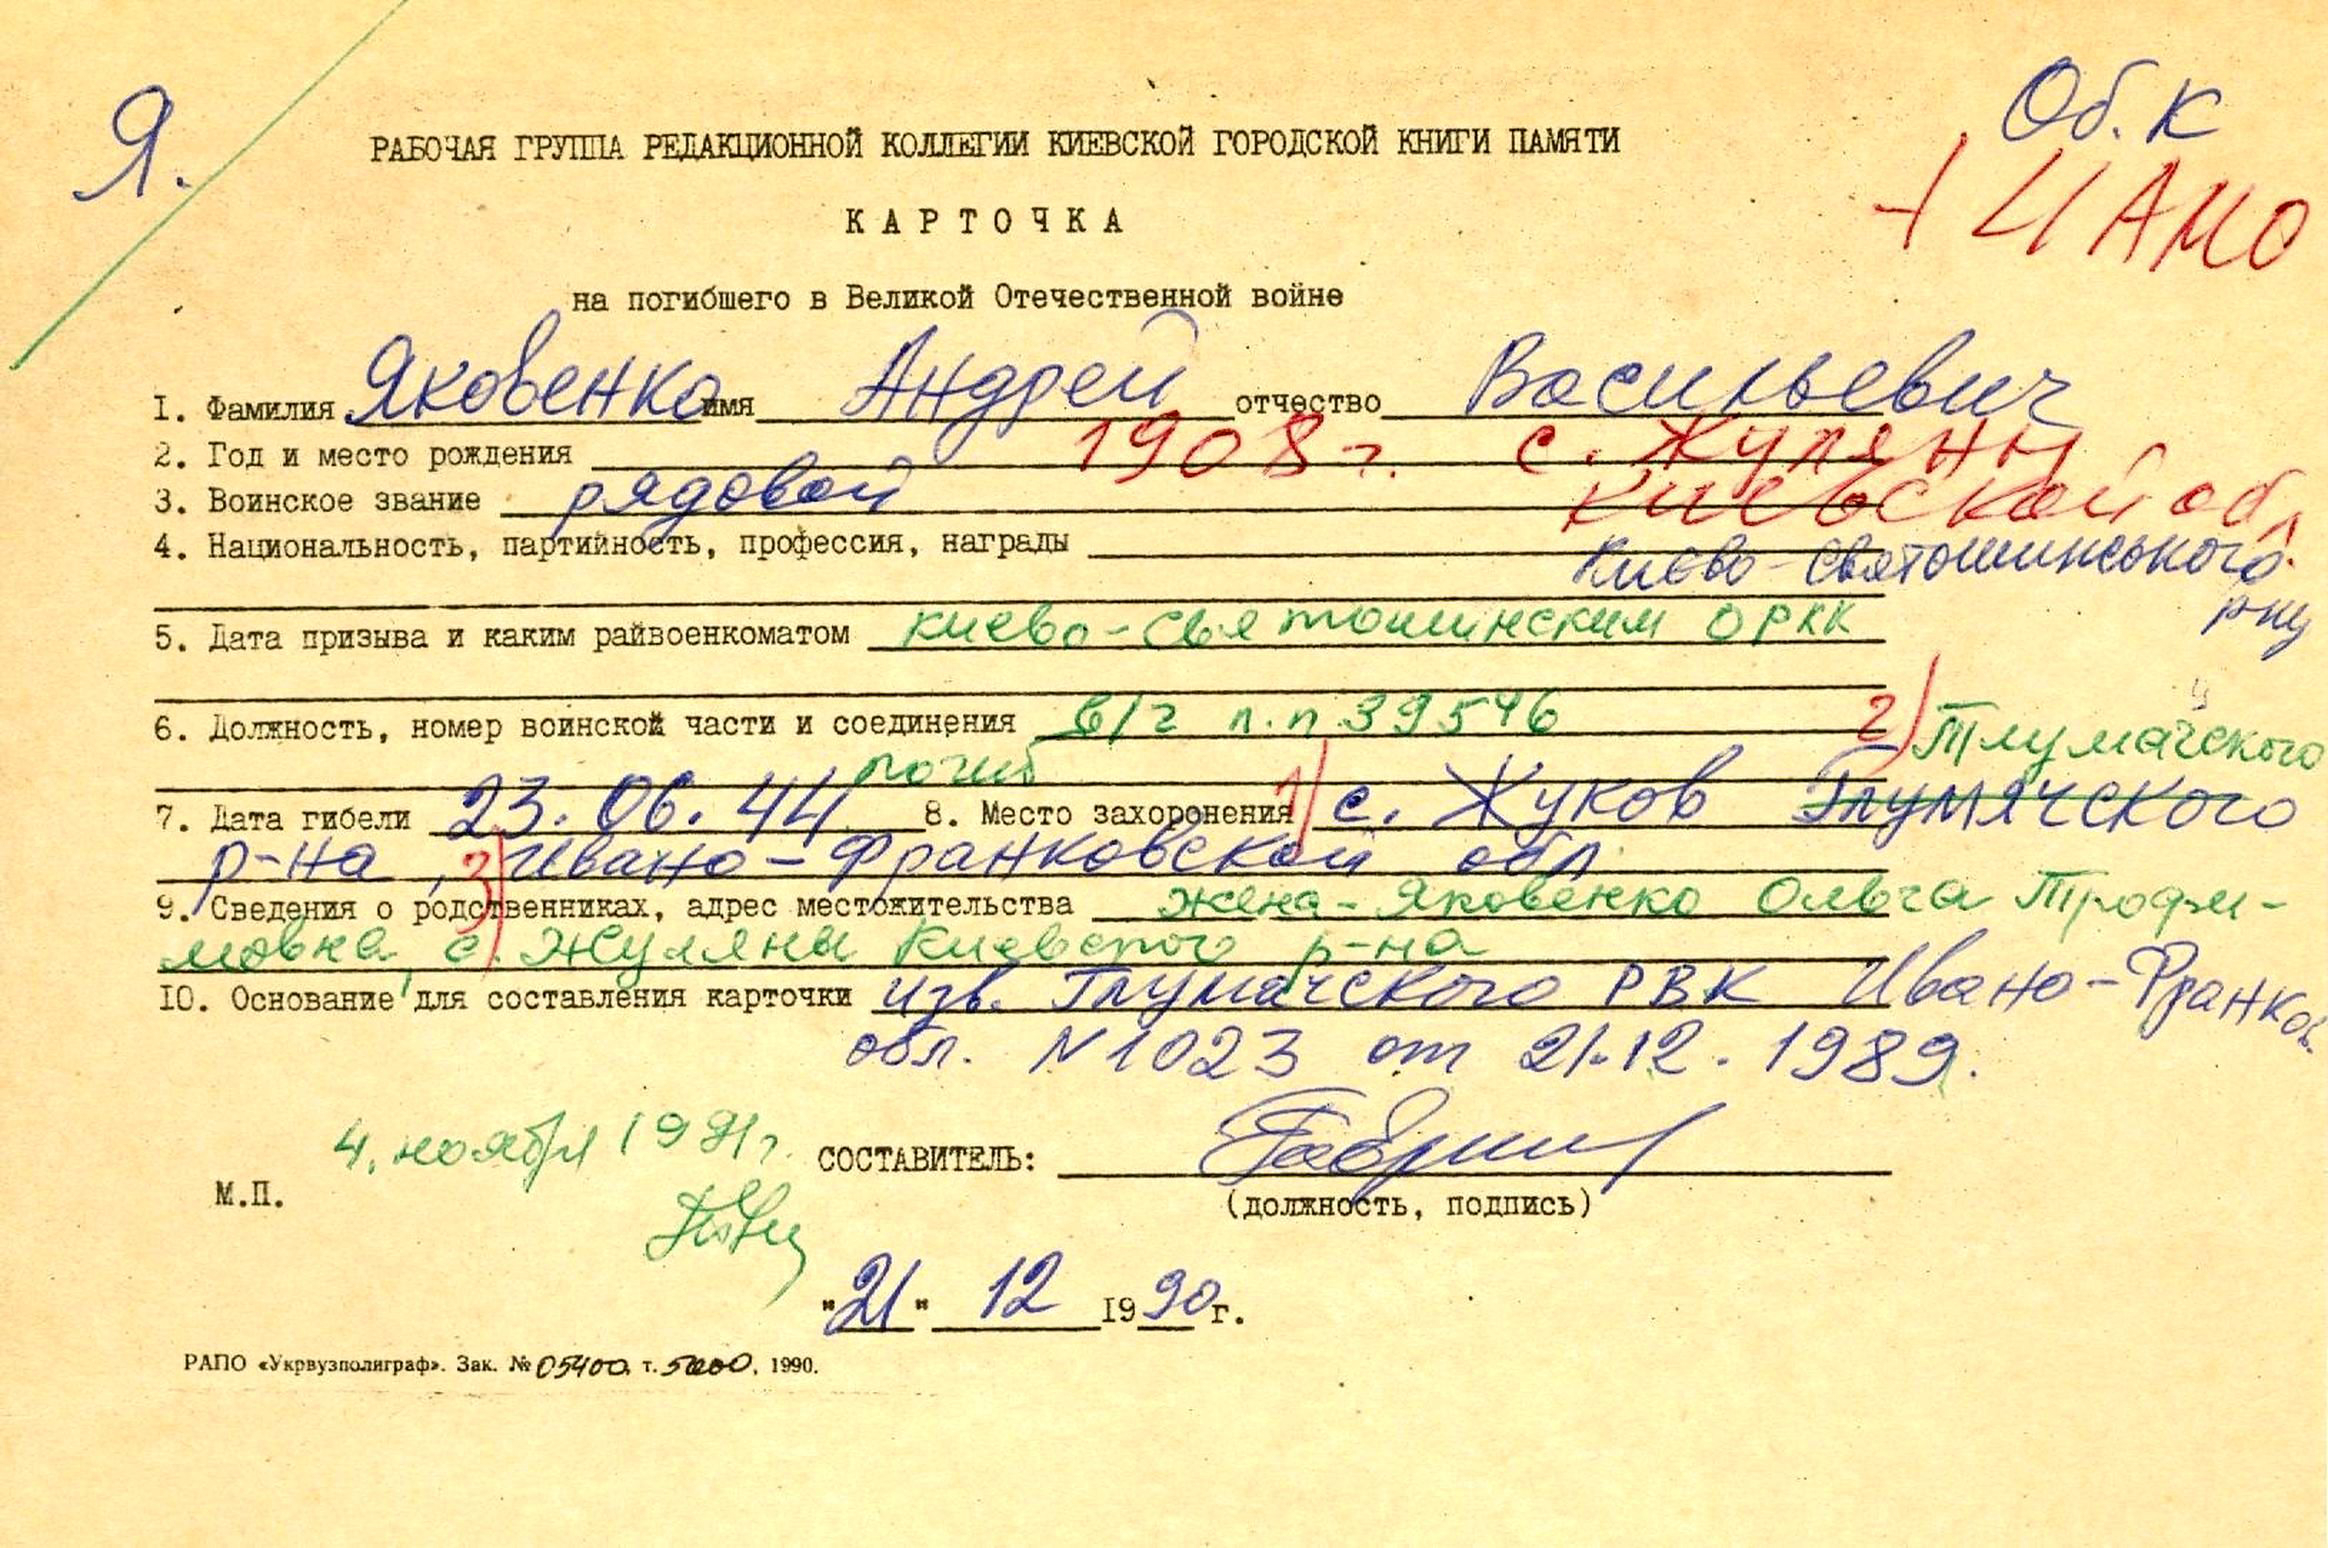 Я.
Об. К
+ ЦАМО
РАБОЧАЯ ГРУППА РЕДАКЦИОННОЙ КОЛЛЕГИИ КИЕВСКОЙ ГОРОДСКОЙ КНИГИ ПАМЯТИ
КАРТОЧКА
на погибшего в Великой Отечественной войне
I. Фамилия Яковенко имя Андрей отчество Васильевич
2. Год и место рождения 1908 г. с. Жуляны
Киевской обл.
3. Воинское звание рядовой
4. Национальность, партийность, профессия, награды
Києво-Святошинського
р-ну
5. Дата призыва и каким райвоенкоматом Киево-Святошинским ОРВК
6. Должность, номер воинской части и соединения в/ч п.п 39546
2) Тлумачского
погиб
7. Дата гибели 23.06.44 8. Место захоронения 1) с. Жуков Тлумячского
р-на, 3) Ивано-Франковской обл
9. Сведения о родственниках, адрес местожительства жена - Яковенко Ольга Трофи-
мовна, с. Жуляны Киевского р-на
10. Основание для составления карточки изв. Тлумачского РВК Ивано-Франков.
обл. N 1023 от 21.12.1989.
4. ноября 1991 г.
СОСТАВИТЕЛЬ:
М.П.
(должность, подпись)
"21" 12 1990 г.
РАПО «Укрвузполиграф». Зак. № 05400. т. 5000. 1990.